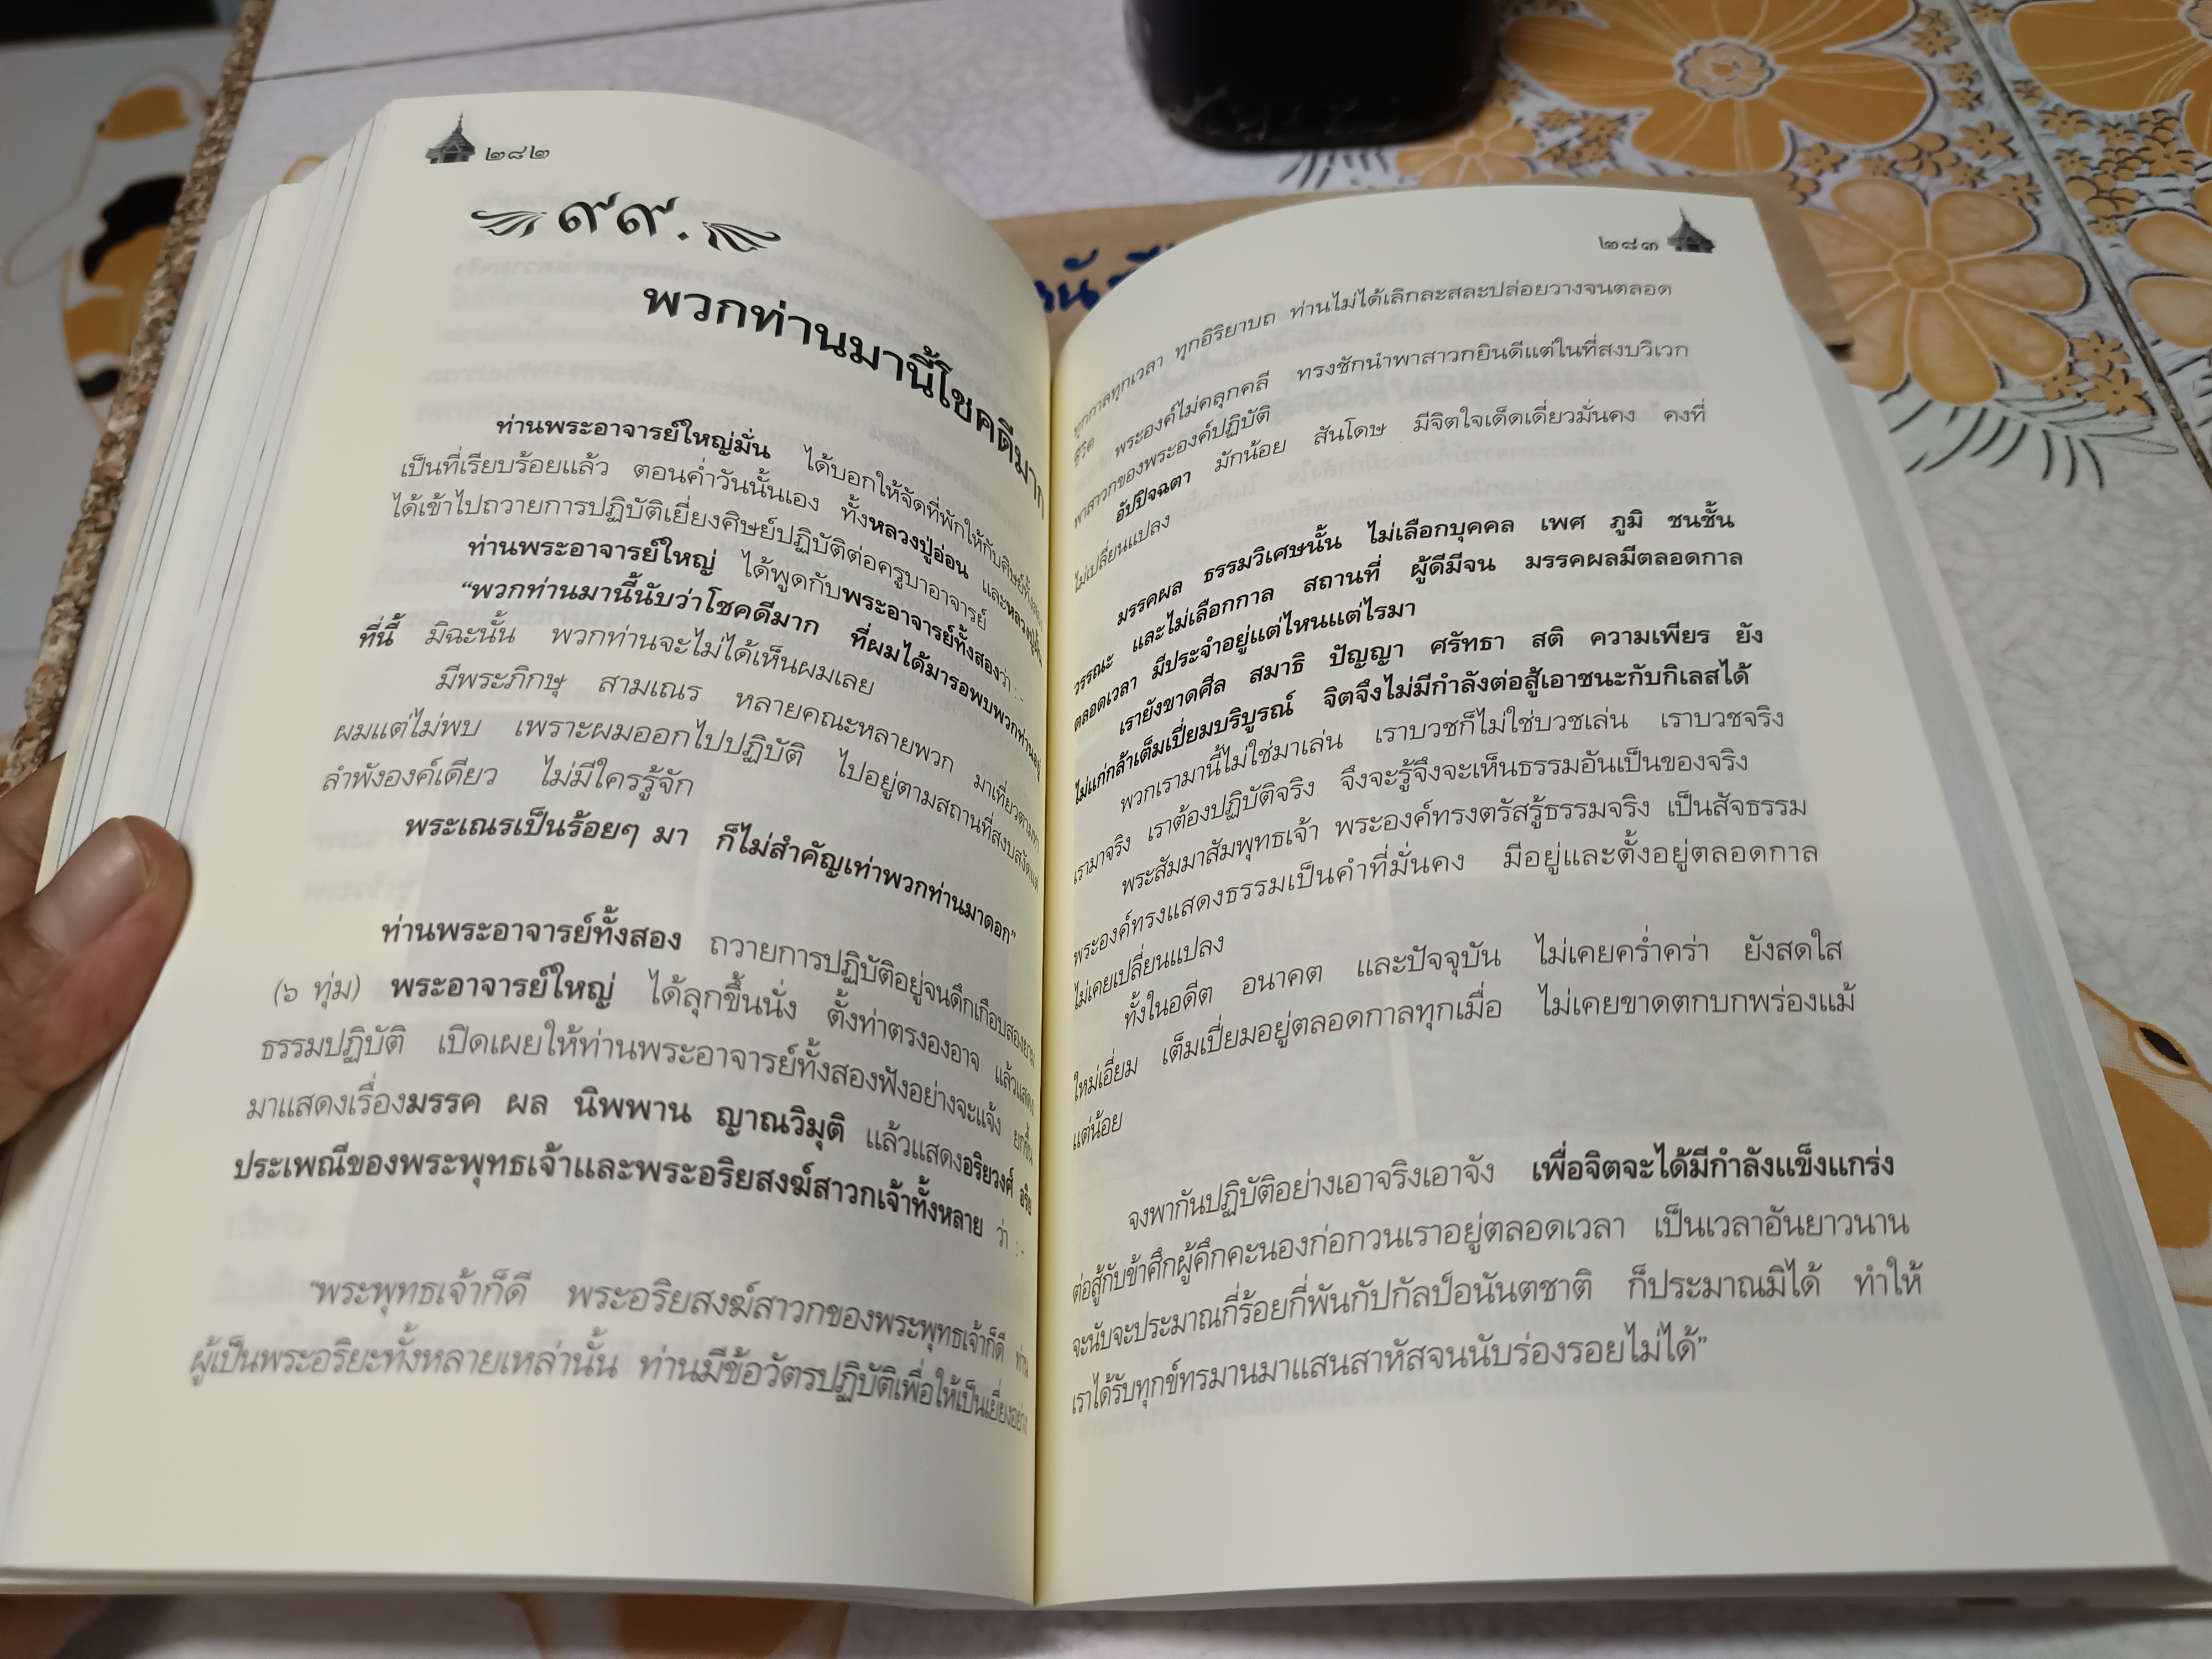 ๒๘๒
๙๙.
พวกท่านมานี้โชคดีมาก
ท่านพระอาจารย์ใหญ่มั่น ได้บอกให้จัดที่พักให้กับศิษย์ทั้งสอง
เป็นที่เรียบร้อยแล้ว ตอนค่ำวันนั้นเอง ทั้งหลวงปู่อ่อน และหลวงปู่
ได้เข้าไปถวายการปฏิบัติเยี่ยงศิษย์ปฏิบัติต่อครูบาอาจารย์
ท่านพระอาจารย์ใหญ่ ได้พูดกับพระอาจารย์ทั้งสองว่า :-
“พวกท่านมานี้นับว่าโชคดีมาก ที่ผมได้มารอพบพวกท่านอยู่
ที่นี้ มิฉะนั้น พวกท่านจะไม่ได้เห็นผมเลย
มีพระภิกษุ สามเณร หลายคณะหลายพวก มาเที่ยวตามหา
ผมแต่ไม่พบ เพราะผมออกไปปฏิบัติ ไปอยู่ตามสถานที่สงบสงัดแต่
ลำพังองค์เดียว ไม่มีใครรู้จัก
พระเณรเป็นร้อยๆ มา ก็ไม่สำคัญเท่าพวกท่านมาดอก”
ท่านพระอาจารย์ทั้งสอง ถวายการปฏิบัติอยู่จนดึกเกือบสองยาม
(๖ ทุ่ม) พระอาจารย์ใหญ่ ได้ลุกขึ้นนั่ง ตั้งท่าตรงองอาจ แล้วแสดง
ธรรมปฏิบัติ เปิดเผยให้ท่านพระอาจารย์ทั้งสองฟังอย่างจะแจ้ง ยกขึ้น
มาแสดงเรื่องมรรค ผล นิพพาน ญาณวิมุติ แล้วแสดงอริยวงศ์ อริย
ประเพณีของพระพุทธเจ้าและพระอริยสงฆ์สาวกเจ้าทั้งหลาย ว่า :-
“พระพุทธเจ้าก็ดี พระอริยสงฆ์สาวกของพระพุทธเจ้าก็ดี ท่าน
ผู้เป็นพระอริยะทั้งหลายเหล่านั้น ท่านมีข้อวัตรปฏิบัติเพื่อให้เป็นเยี่ยงอย่าง
๒๘๓
ทุกกาลทุกเวลา ทุกอิริยาบถ ท่านไม่ได้เลิกละสละปล่อยวางจนตลอด
ชีวิต พระองค์ไม่คลุกคลี ทรงชักนำพาสาวกยินดีแต่ในที่สงบวิเวก
พาสาวกของพระองค์ปฏิบัติ
อัปปิจฉตา มักน้อย สันโดษ มีจิตใจเด็ดเดี่ยวมั่นคง คงที่
ไม่เปลี่ยนแปลง
มรรคผล ธรรมวิเศษนั้น ไม่เลือกบุคคล เพศ ภูมิ ชนชั้น
วรรณะ และไม่เลือกกาล สถานที่ ผู้ดีมีจน มรรคผลมีตลอดกาล
ตลอดเวลา มีประจำอยู่แต่ไหนแต่ไรมา
เรายังขาดศีล สมาธิ ปัญญา ศรัทธา สติ ความเพียร ยัง
ไม่แก่กล้าเต็มเปี่ยมบริบูรณ์ จิตจึงไม่มีกำลังต่อสู้เอาชนะกับกิเลสได้
พวกเรามานี้ไม่ใช่มาเล่น เราบวชก็ไม่ใช่บวชเล่น เราบวชจริง
เรามาจริง เราต้องปฏิบัติจริง จึงจะรู้จึงจะเห็นธรรมอันเป็นของจริง
พระสัมมาสัมพุทธเจ้า พระองค์ทรงตรัสรู้ธรรมจริง เป็นสัจธรรม
พระองค์ทรงแสดงธรรมเป็นคำที่มั่นคง มีอยู่และตั้งอยู่ตลอดกาล
ไม่เคยเปลี่ยนแปลง
ทั้งในอดีต อนาคต และปัจจุบัน ไม่เคยคร่ำคร่า ยังสดใส
ใหม่เอี่ยม เต็มเปี่ยมอยู่ตลอดกาลทุกเมื่อ ไม่เคยขาดตกบกพร่องแม้
แต่น้อย
จงพากันปฏิบัติอย่างเอาจริงเอาจัง เพื่อจิตจะได้มีกำลังแข็งแกร่ง
ต่อสู้กับข้าศึกผู้คึกคะนองก่อกวนเราอยู่ตลอดเวลา เป็นเวลาอันยาวนาน
จะนับจะประมาณกี่ร้อยกี่พันกัปกัลป์อนันตชาติ ก็ประมาณมิได้ ทำให้
เราได้รับทุกข์ทรมานมาแสนสาหัสจนนับร่องรอยไม่ได้”